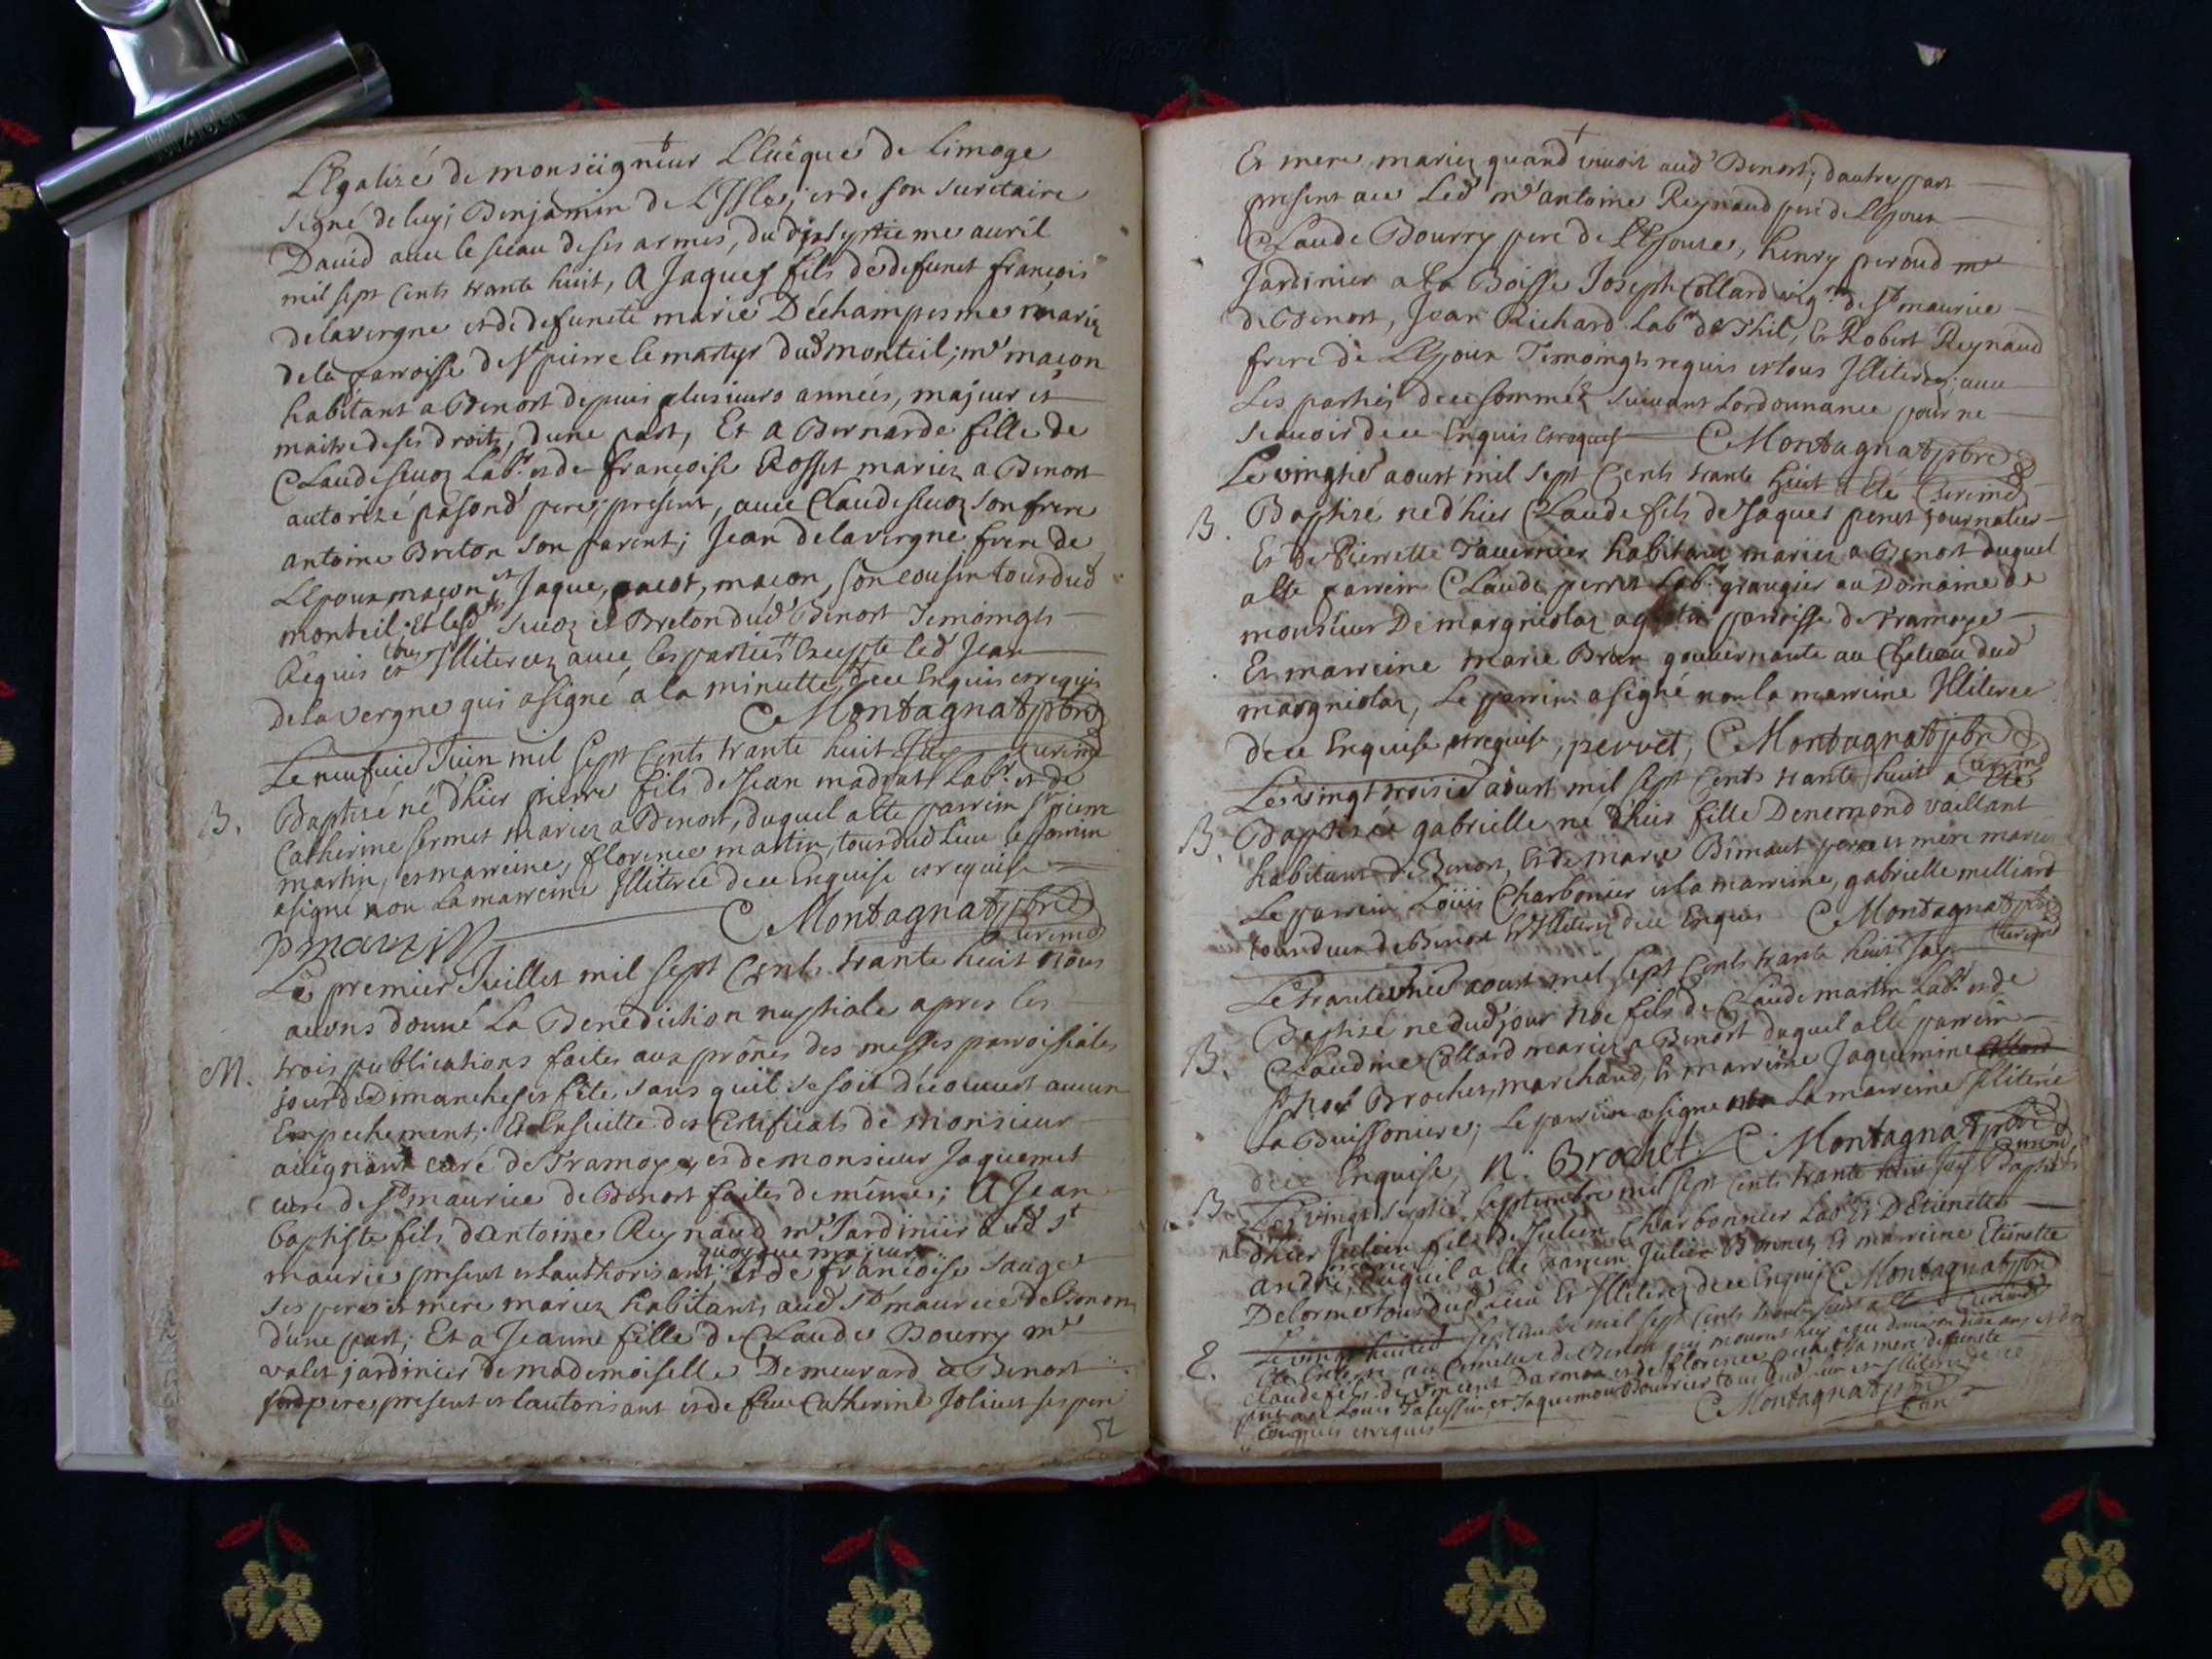 Légalizé de monseigneur Lévêque de Limoge
signé de luy; Benjamin de L'Isle; et de son secretaire
David avec le sceau de ses armes, du dixseptieme avril
mil sept cents trante huit, A Jaques fils de defunct françois
delavergne et de defuncte marie Déchamps mariez
de la parroisse de St pierre le martyr dud monteil; me maçon
habitant a Benost depuis plusieurs années, majeur et
maitre de ses droits, dune part, Et a Bernarde fille de
Claude Labr. et de françoise Rosset mariez a Benost
autorizé pere present, avec Claude son frere
antoine Breton son parent; Jean delavergne frere de
Lepoux maçon et Jaque pacot, maçon, son cousin tous dud
monteil; Et lesd et Breton dud Benost Temoingts
Requis et tous Illiterez avec les parties Excepte led Jean
delavergne qui a signé a la minutte, de ce Enquis et requis
C Montagnat pbre
Le neufvie Juin mil sept Cents trante huit Jay
B. Baptizé né d'hier pierre fils de Jean Labr. et de
Catherine Sermet mariez a Benost, duquel a eté parrein Sr pierre
martin, et marreine, florence martin, tous dud lieu le parrein
a signé non La marreine Illiterée de ce Enquise et requise
P martin C Montagnat pbre
Le premier Juillet mil sept Cents trante huit nous
avons donné La Benediction nuptiale apres les
M. trois publications faites aux prônes des messes parroissiales
jour de Dimanche et fête sans quil se soit découvert aucun
Empechement; Et Ensuitte des Certificats de monsieur
curé de Tramoye, et de monsieur Jaquemet
curé de St maurice de Benost faites de mêmes; A Jean
baptiste fils d'antoine Reynaud me Jardinier aud St
maurice present et lauthorisant quoyque majeur et de françoise Sauge
ses pere et mere mariez habitants aud St maurice de Benost
d'une part; Et a Jeanne fille de Claude Bourry me
valet jardinier de mademoiselle Demeurard a Benost
sond pere present et lautorisant et de feue Catherine Jolivet ses pere
52
Et mere mariez quand vivoit aud Benost; dautre part
present avec Led me antoine Reynaud pere de Lepoux
Claude Bourry pere de L'Epouse, henry peroud me
Jardinier a la Boisse Joseph Collard vign. de St maurice
de Benost, Jean Richard Labr de Thil, Et Robert Reynaud
frere de Lepoux Temoingts requis et tous Illiterez; avec
Les parties de ce sommés suivant Lordonnance pour ne
Scavoir de ce Enquis et requis C Montagnat pbre
Le vingtie aoust mil sept Cents trante huit a eté
B. Baptizé né d'hier Claude fils de Jaques perret journalier
Et de Pierrette Tavernier habitants mariez a Benost duquel
a eté parrein Claude perret Labr. grangier au Domaine de
monsieur De margniolaz parroisse de Tramoye
Et marreine marie gouvernante au Chateau dud
margniolaz, Le parrein a signé non la marreine Illiterée
de ce Enquise et requise, perret, C Montagnat pbre
Le vingt troisie aoust mil sept Cents trante huit a Eté
B. Baptizée gabrielle né d'hier fille Denemond vaillant
habitant de Benost, et de marie Bimant pere et mere mariez
Le parrein Loüis Charbonier et la marreine, gabrielle milliard
tous deux de Benost et Illiterez de ce Enquis C Montagnat pbre
Le Trante unie aoust mil sept Cents trante huit Jay
B. Baptizé né dud jour Noe fils de Claude martin Labr. et de
Claudine Collard mariez a Benost duquel a eté parrein
Sr Noé Brochet, marchand, Et marreine Jaquemine
La Buissoniere; Le parrein a signé non La marreine Illiterée
de ce Enquise, N. Brochet. C Montagnat pbre
B. Le vingt septie. septembre mil sept Cents trante huit Jay Baptizé
né d'hier Julien fils de Julien Charbonnier Labr. Et D'Etienette
andré, mariez duquel a eté parrein Julien Bonnet Et marreine Etienette
Delorme tous dud Lieu Et Illiterez de ce Enquis C Montagnat pbre
E. Le vingt huitie septembre mil sept Cents trante huit a eté
Eté Enterré au Cimetiere de Benost qui mourut hier
Claude fils de vincent Darmon et de florence sa mere defuncte
present avec Louis et Jaquemon Bourrier tous dud lieu et Illiterez de ce
Enquis et requis C Montagnat pbre
Curé